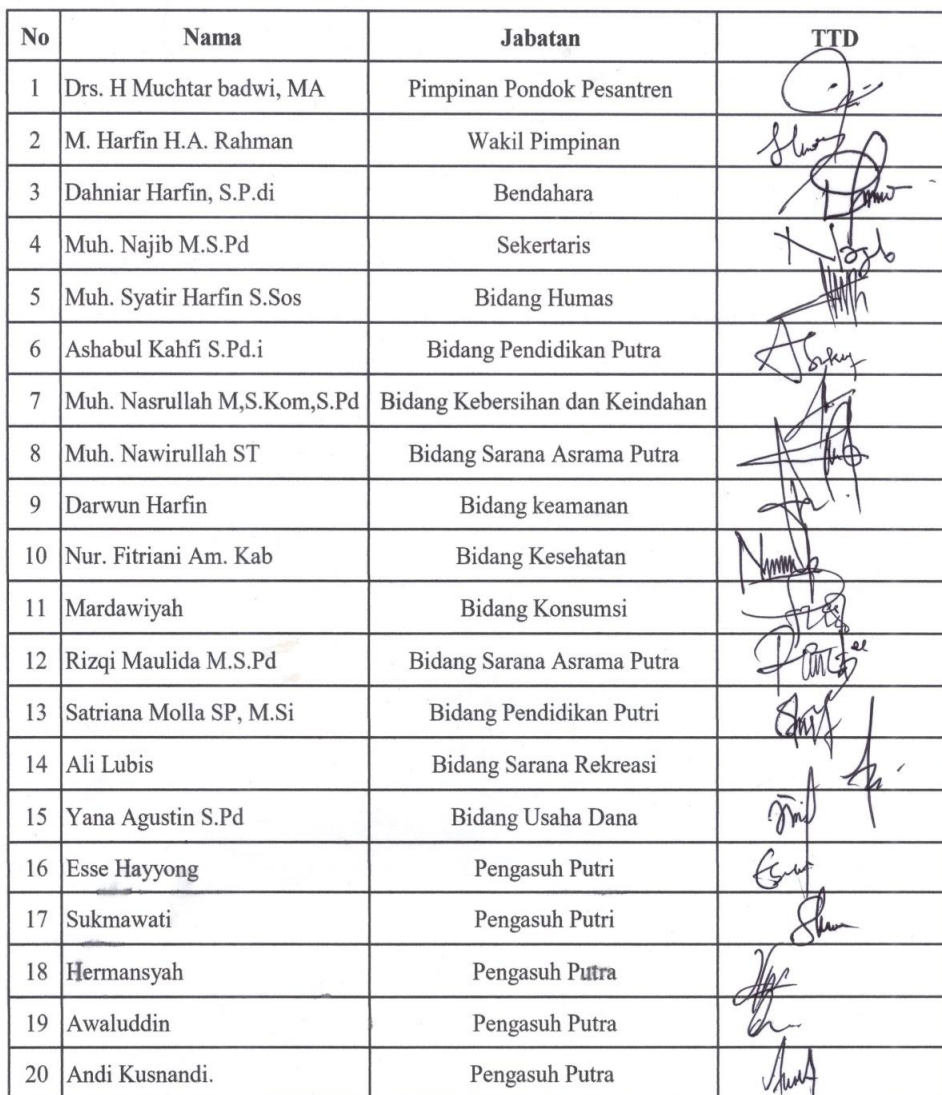 No Nama Jabatan TTD
1 Drs. H Muchtar badwi, MA Pimpinan Pondok Pesantren
2 M. Harfin H.A. Rahman Wakil Pimpinan
3 Dahniar Harfin, S.P.di Bendahara
4 Muh. Najib M.S.Pd Sekertaris
5 Muh. Syatir Harfin S.Sos Bidang Humas
6 Ashabul Kahfi S.Pd.i Bidang Pendidikan Putra
7 Muh. Nasrullah M,S.Kom,S.Pd Bidang Kebersihan dan Keindahan
8 Muh. Nawirullah ST Bidang Sarana Asrama Putra
9 Darwun Harfin Bidang keamanan
10 Nur. Fitriani Am. Kab Bidang Kesehatan
11 Mardawiyah Bidang Konsumsi
12 Rizqi Maulida M.S.Pd Bidang Sarana Asrama Putra
13 Satriana Molla SP, M.Si Bidang Pendidikan Putri
14 Ali Lubis Bidang Sarana Rekreasi
15 Yana Agustin S.Pd Bidang Usaha Dana
16 Esse Hayyong Pengasuh Putri
17 Sukmawati Pengasuh Putri
18 Hermansyah Pengasuh Putra
19 Awaluddin Pengasuh Putra
20 Andi Kusnandi. Pengasuh Putra